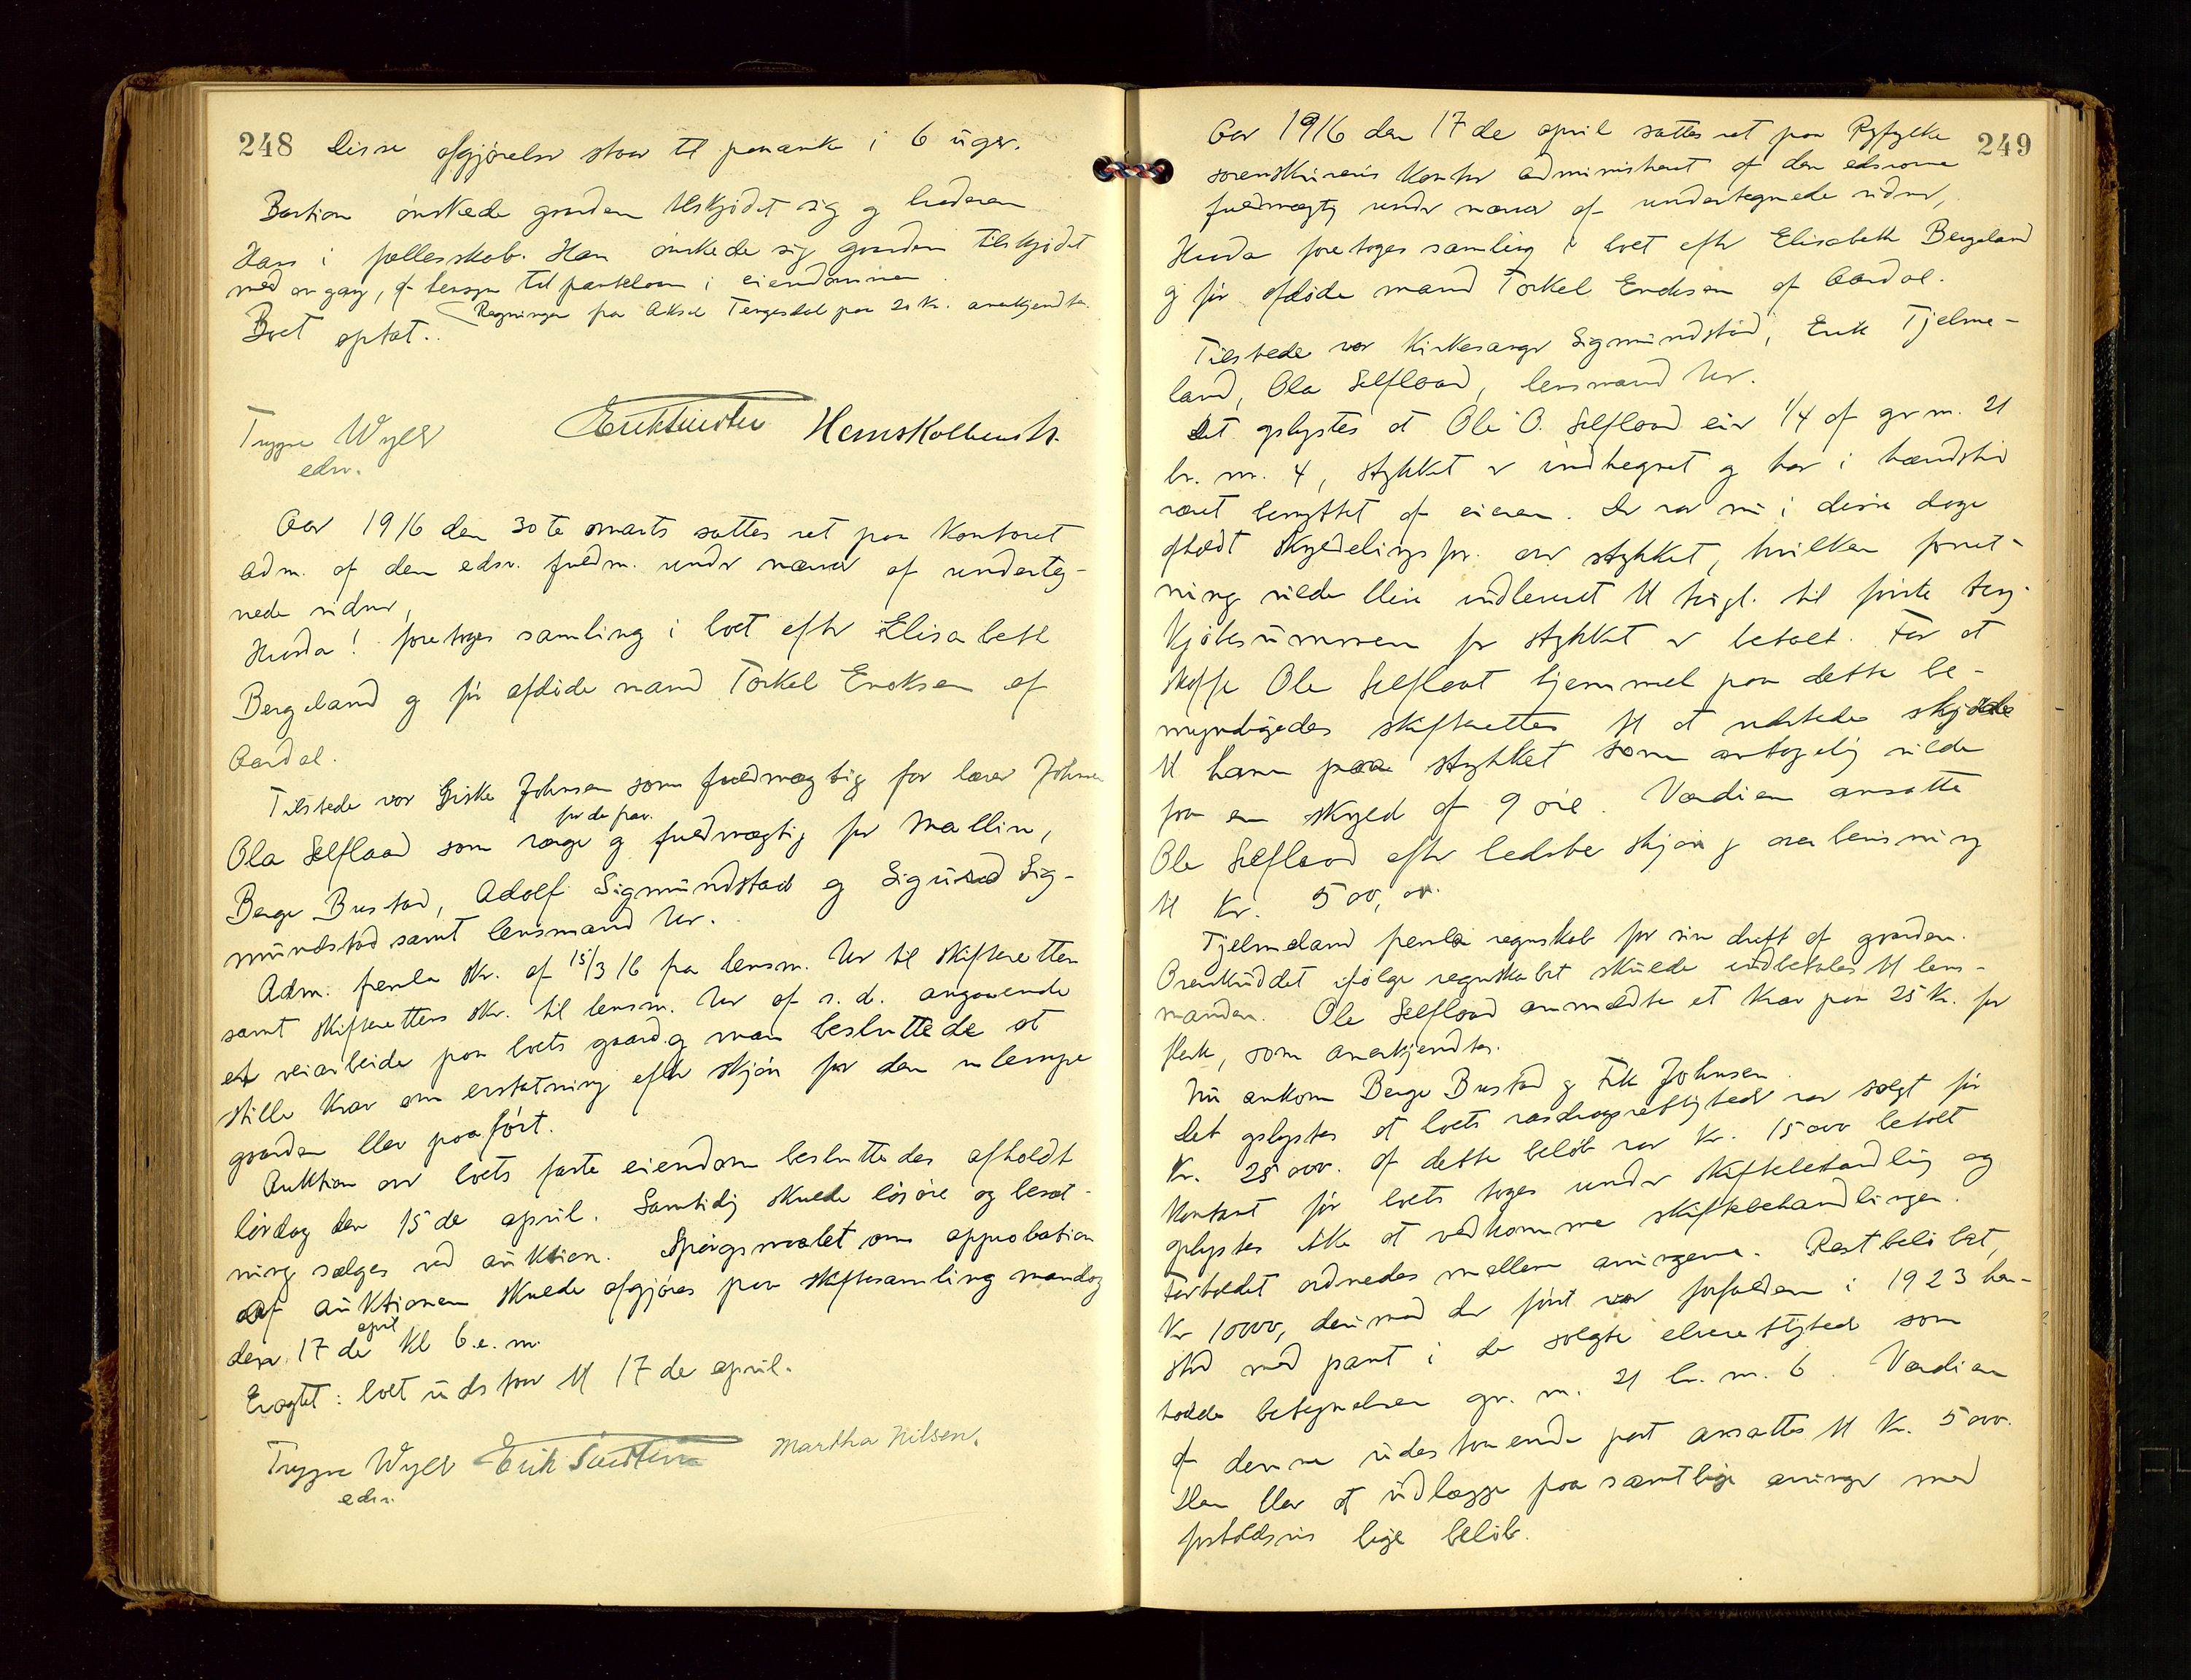 248 Disse afgjørelser staar til paaanke i 6 uger.
Bastian ønskede gaarden tilskjødet sig og broderen
Hans i fællesskab. Han ønskede sig gaarden tilskjødet
med en gang, af hensyn til pantelaan i eiendommen.
Regningen fra Aksel Tengesdal paa 20 kr. anerkjendtes.
Boet optat.
Trygve Wyller
edsv.
Aar 1916 den 30te marts sattes ret paa kontoret
adm. af den edsv. fuldm. under nærvær af underteg-
nede vidner,
Hvorda! foretoges samling i boet efter Elisabeth
Bergeland og før afdøde mand Torkel Eriksen af
Aardal.
Tilstede var Giske Johnsen som fuldmægtig for lærer Johnsen
Ola Selflaad som værge og fuldmægtig for Malline,
for de frav.
Berge Bustad, Adolf Sigmundstad og Sigurd Sig-
mundstad samt lensmand Ur.
Adm. feemla skr. af 15/3 16 fra lensm. Ur til skifteretten
samt skifterettens skr. til lensm. Ur af s. d. angaaende
et veiarbeide paa boets gaard og man besluttede at
stille krav om erstatning efter skjøn for den ulempe
gaarden blev paaført.
Auktion over boets faste eiendom besluttedes afholdt
lørdag den 15de april. Samtidig skulde løsøre og besæt-
ning sælges ved auktion. Spørgsmaalet om approbation
af auktionen skulde afgjøres paa skiftesamling mandag
den 17de april kl 6 e. m.
Eragtet: boet udstaar til 17de april.
Trygve Wyller Martha Nilsen.
edsv.
249
Aar 1916 den 17de april sattes ret paa Ryfylke
sorenskriveris kontor administreret af den edsvorne
fuldmægtig under nærvær af undertegnede vidner,
Hvorda foretoges samling i boet efter Elisabeth Bergeland
og før afdøde mand Torkel Eriksen af Aardal.
Tilstede var kirkesanger Sigmundstad, Erik Tjelme-
land, Ola Selflaad, lensmand Ur.
Det oplystes at Ole O. Selflaad eier 1/4 af gr. nr. 21
br. nr. 4, stykket er indhegnet og har i hævdstid
været benyttet af eieren. Der var nu i disse dage
afholdt skylddelingsfor. over stykket, hvilken forret-
ning vilde blive indleveret til tingl. til første ting.
Kjøbesummen for stykket er betalt. For at
skaffe Ole Selflaat hjemmel paa dette be-
myndigedes skifteretten til at udstede skjøde
til ham paa stykket som antagelig vilde
faa en skyld af 9 øre. Værdien ansatte
Ole Selflaad efter bedste skjøn og overbevisning
til kr. 500,00.
Tjelmeland feemla regnskab for sin drift af gaarden.
Overskuddet ifølge regnskabet skulde indbetales til lens-
manden. Ole Selflaad anmeldte et krav paa 25 kr. for
flesk, som anerkjendtes.
Nu ankom Berge Bustad og Frk Johnsen.
Det oplystes at boets vasdragsrettigheder var solgt før
kr. 25000. Af dette beløb var kr. 15000 betalt
kontant før boets toges under skiftebehandling og
oplystes ikke at vedkomme skiftebehandlingen.
Forholdet ordnedes mellem arvingene. Restbeløbet,
kr 10000, derimod der først var forfalden i 1923 hen-
stod med pant i de solgte elverettigheder som
hadde betegnelsen gr. nr. 21 br. nr. 6. Værdien
af denne udestaaende post ansattes til kr. 5000.
Den blev at udlægge paa samtlige arvinger med
forholdsvis lige beløb.